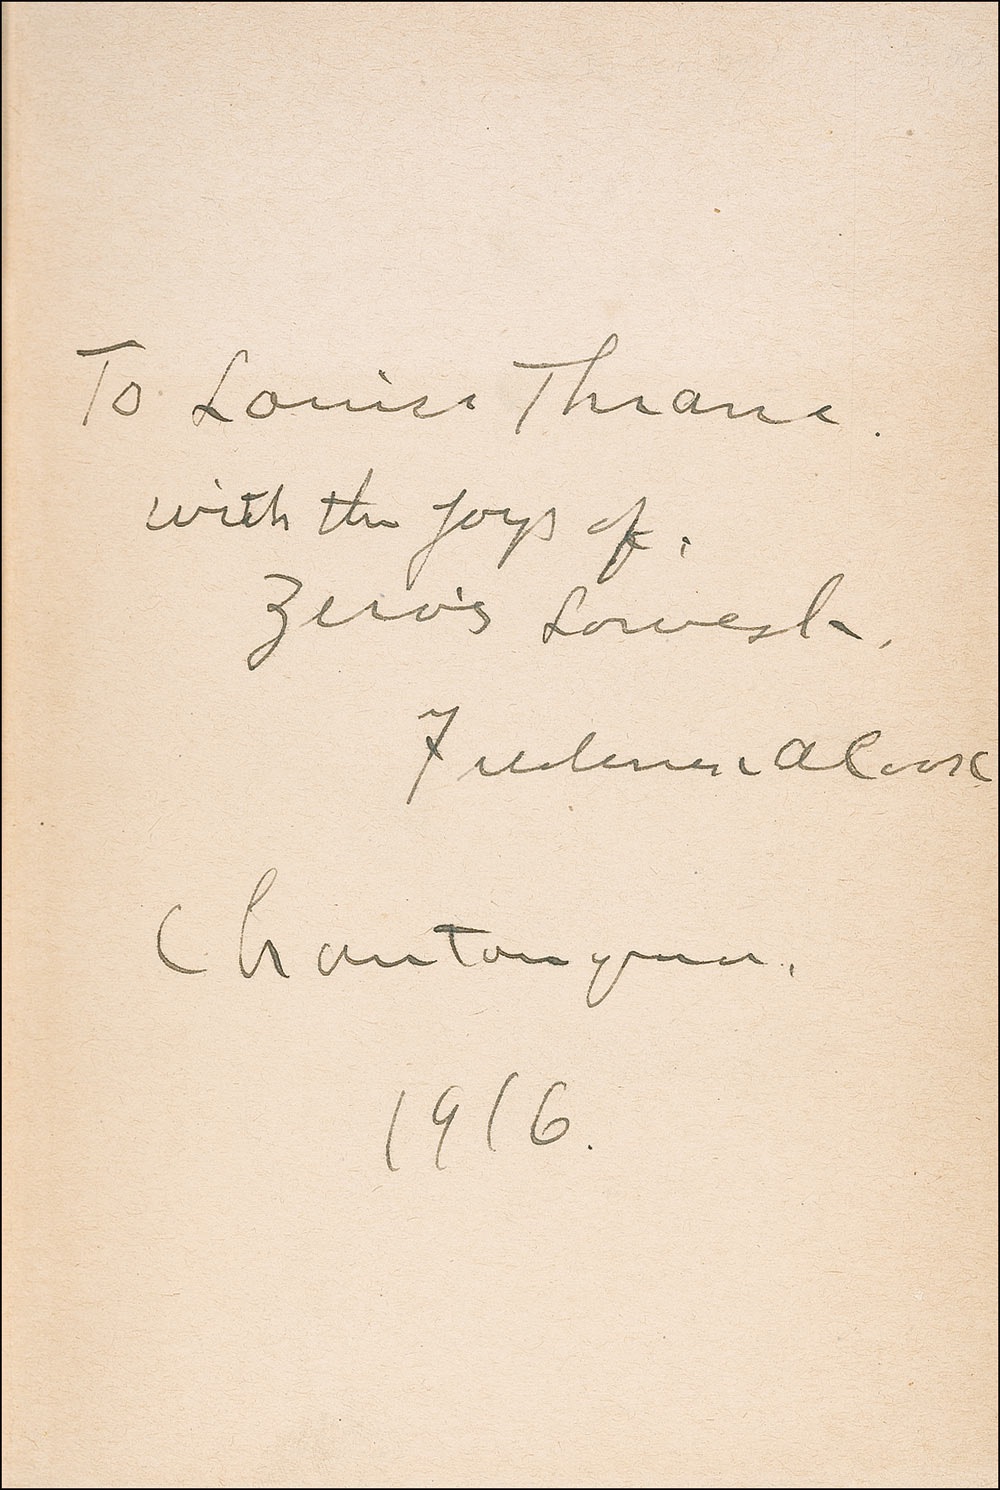 To Louise Thrane.
with the joys of.
Zero's Lowest.
Frederick A Cook
Chautauqua.
1916.